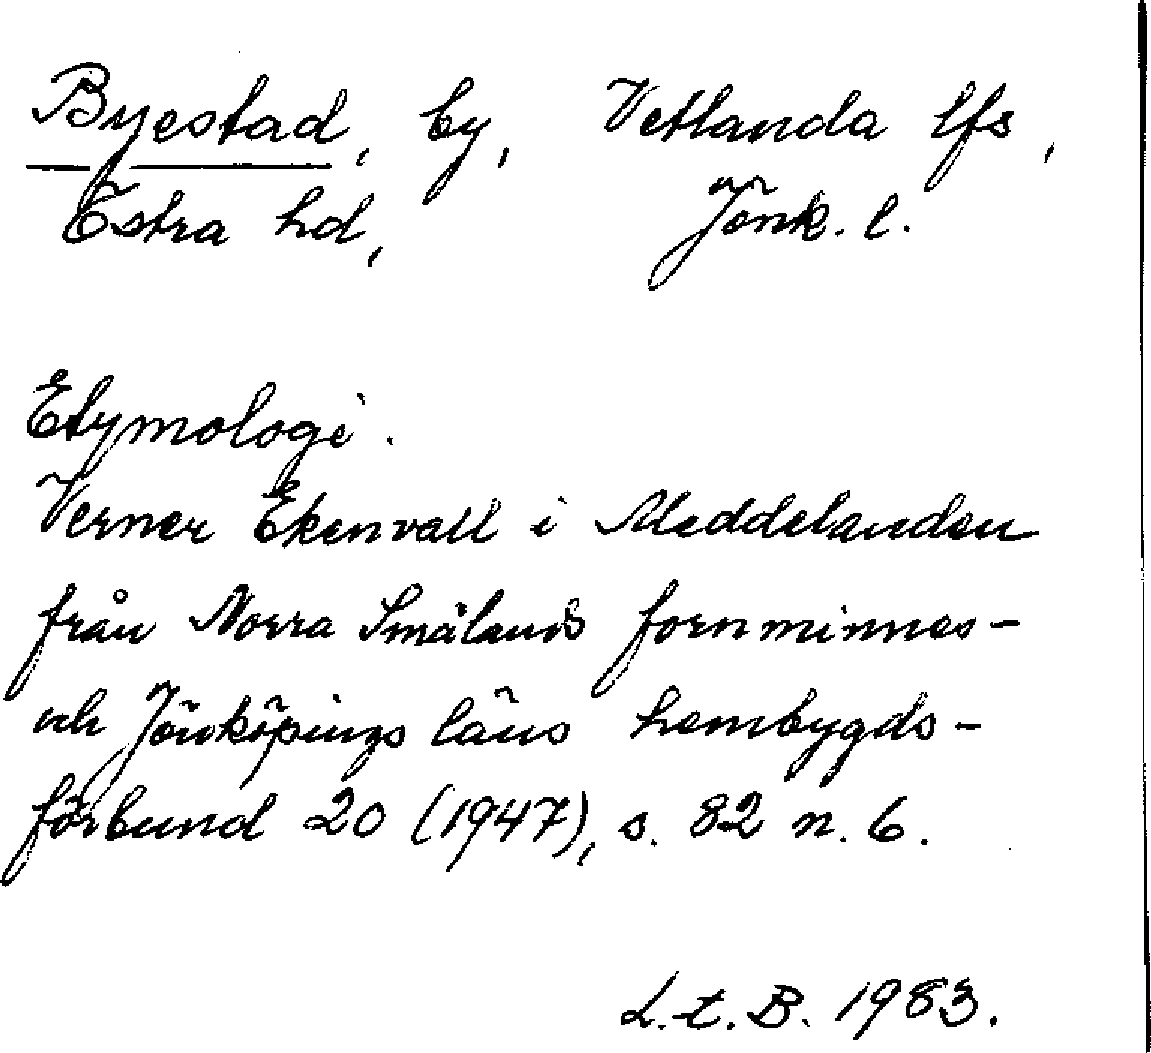 Byestad, by, Vetlanda lfs,
Östra hd, Jönk. l.
Etymologi.
Verner Ekenvall i Meddelanden
från Norra Smålands fornminnes-
och Jönköpings läns hembygds-
förbund 20 (1947), s. 82 n. 6.
L.t.B. 1983.